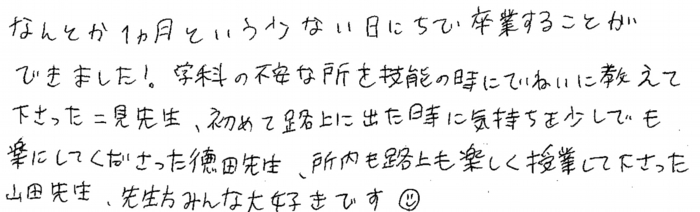 なんとか1ヵ月という少ない日にちで卒業することが
できました!。学科の不安な所を技能の時にていねいに教えて
下さった二見先生、初めて路上に出た時に気持ちを少しでも
楽にしてくださった徳田先生、所内も路上も楽しく授業して下さった
山田先生、先生方みんな大好きです☺